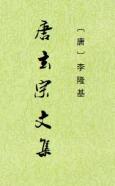 〔唐〕李隆基
唐玄宗文集